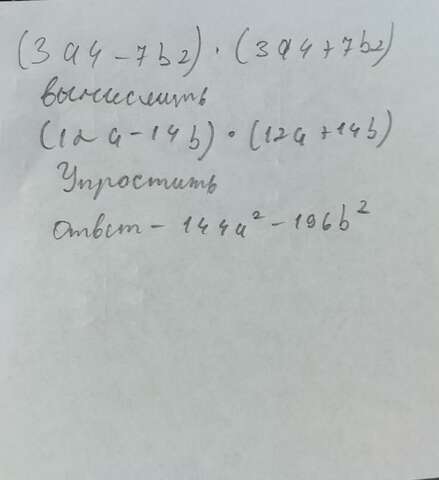 (3a4-7b2)·(3a4+7b2)
вычислить
(12a-14b)·(12a+14b)
Упростить
ответ - 144a²-196b²